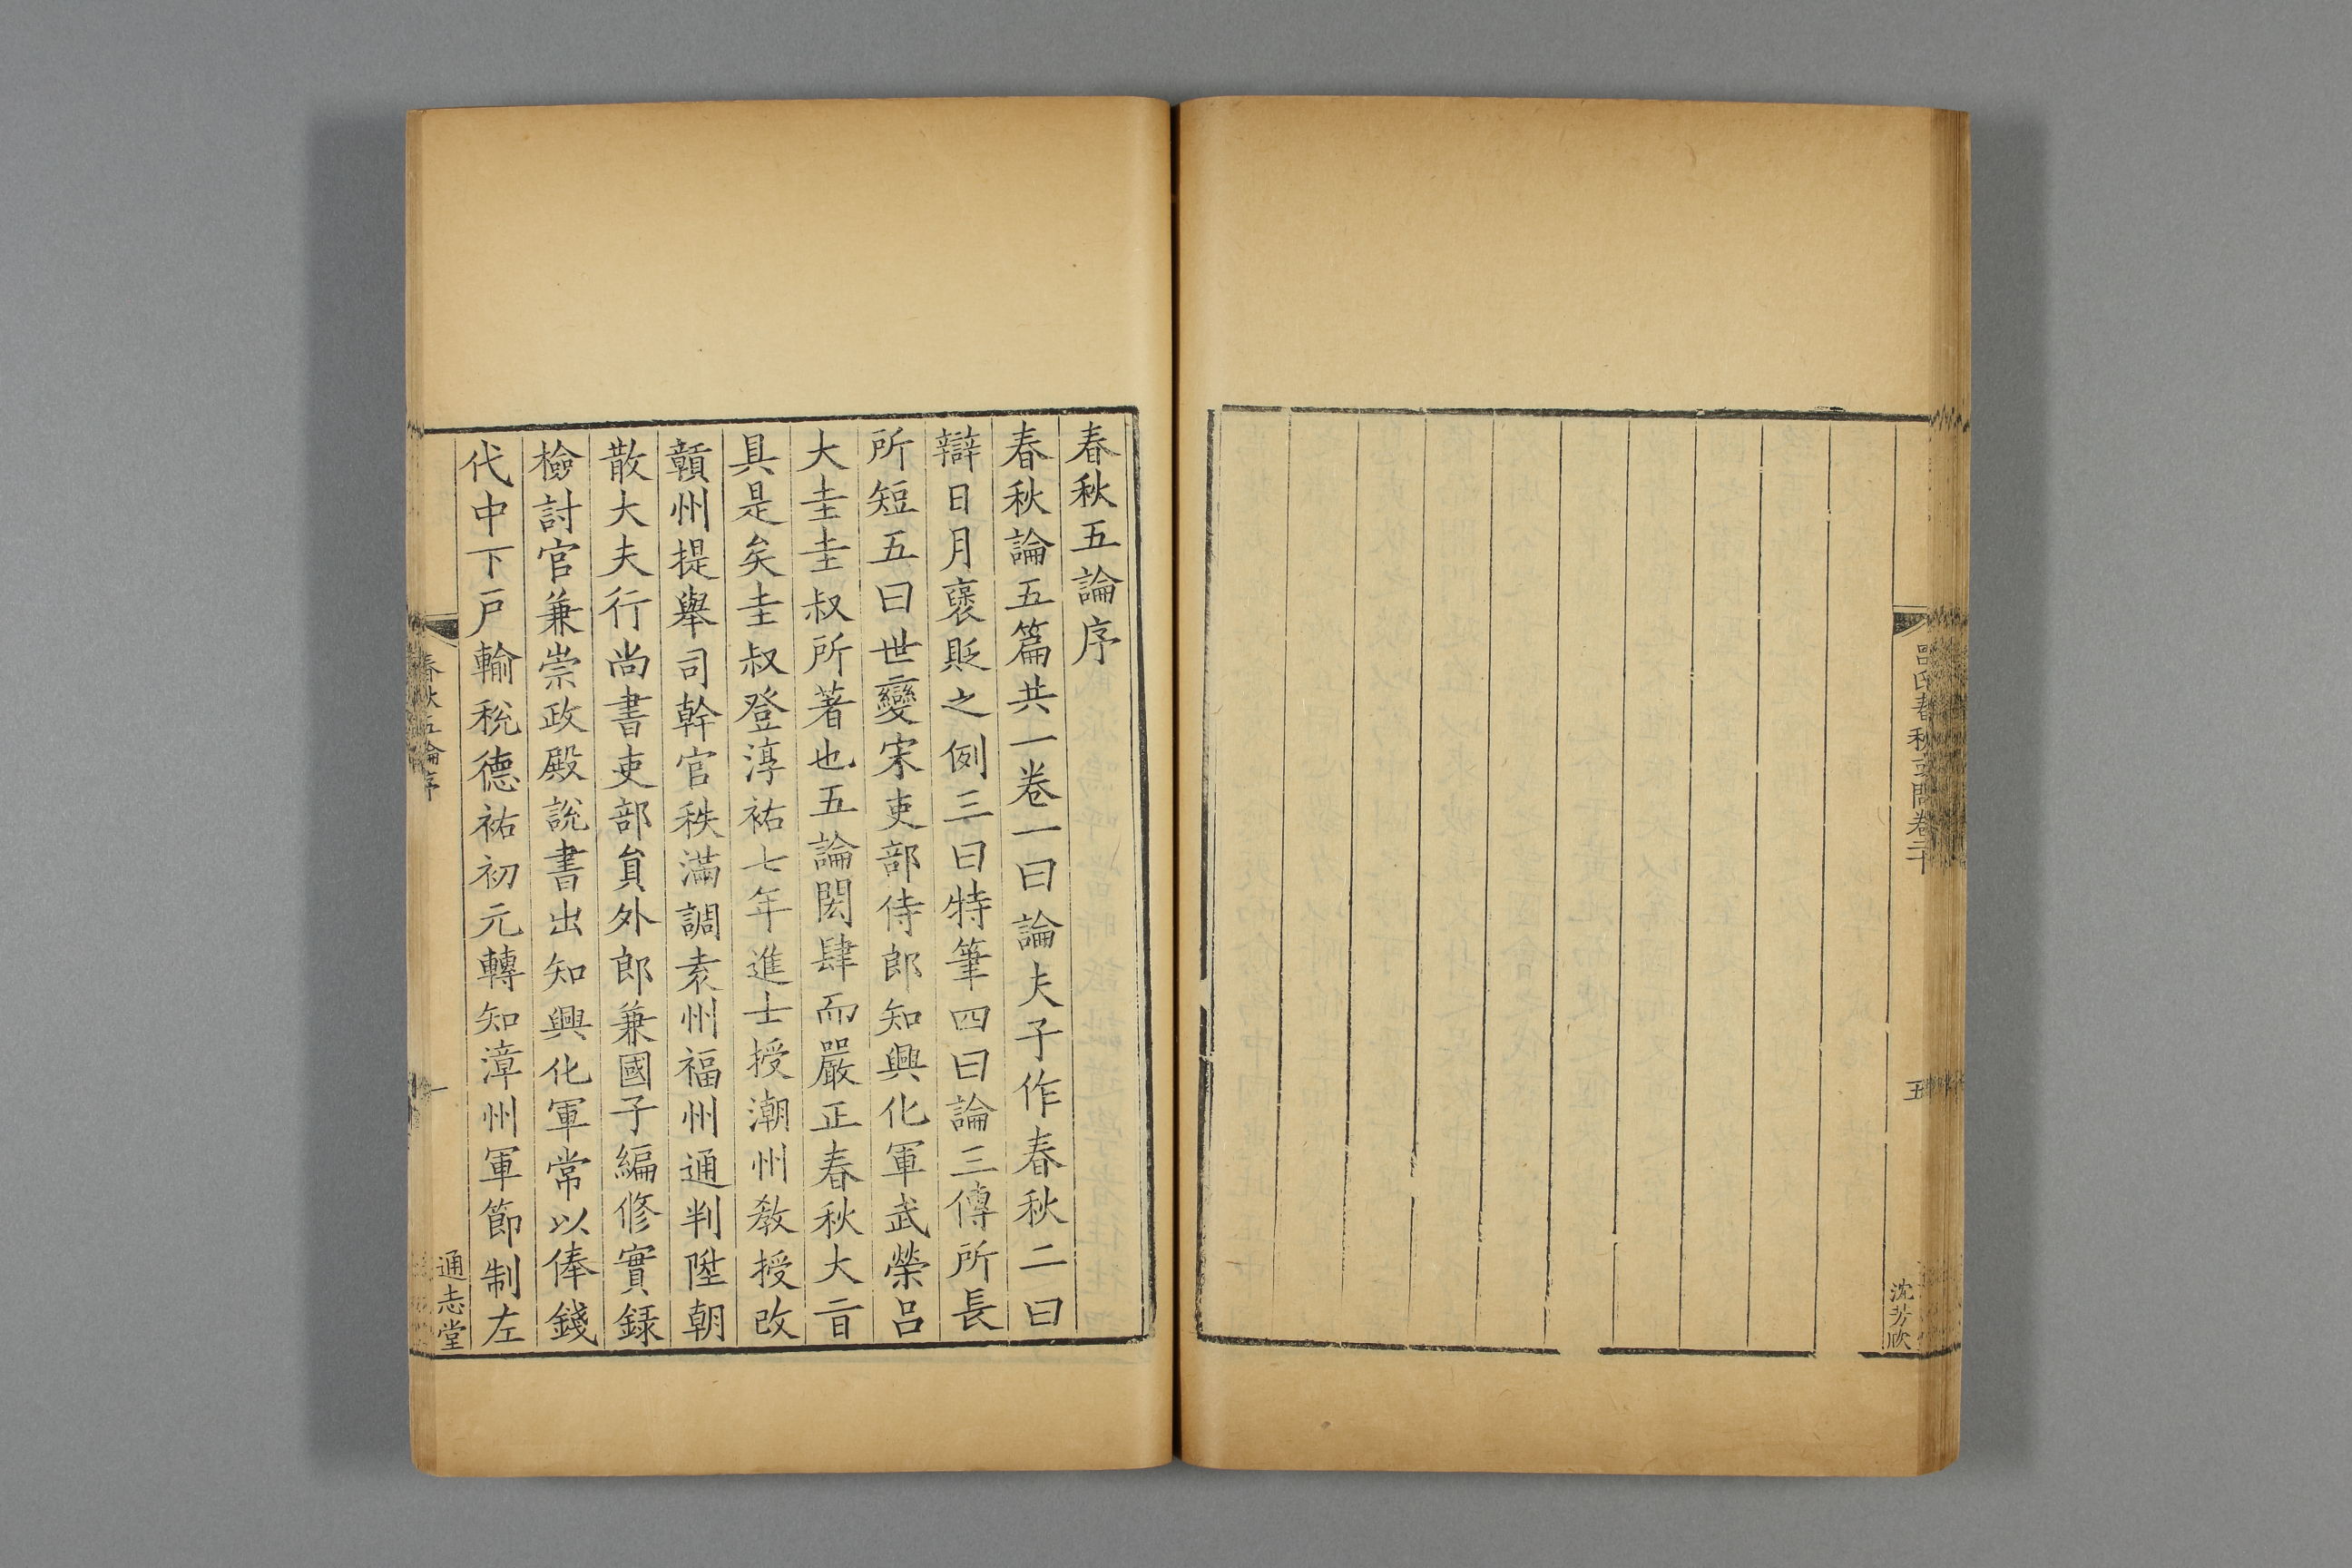 呂氏春秋或問卷二十
五
沈芳欣
春秋五論序
春秋論五篇共一卷一曰論夫子作春秋二曰
辯日月襃貶之例三曰特筆四曰論三傳所長
所短五曰世變宋吏部侍郎知興化軍武榮呂
大圭圭叔所著也五論閎肆而嚴正春秋大㫖
具是矣圭叔登淳祐七年進士授潮州教授改
贛州提舉司幹官秩滿調袁州福州通判陞朝
散大夫行尚書吏部負外郎兼國子編修實録
檢討官兼崇政殿說書出知興化軍常以俸錢
代中下戶輸稅德祐初元轉知漳州軍節制左
春秋五論序
一
通志堂